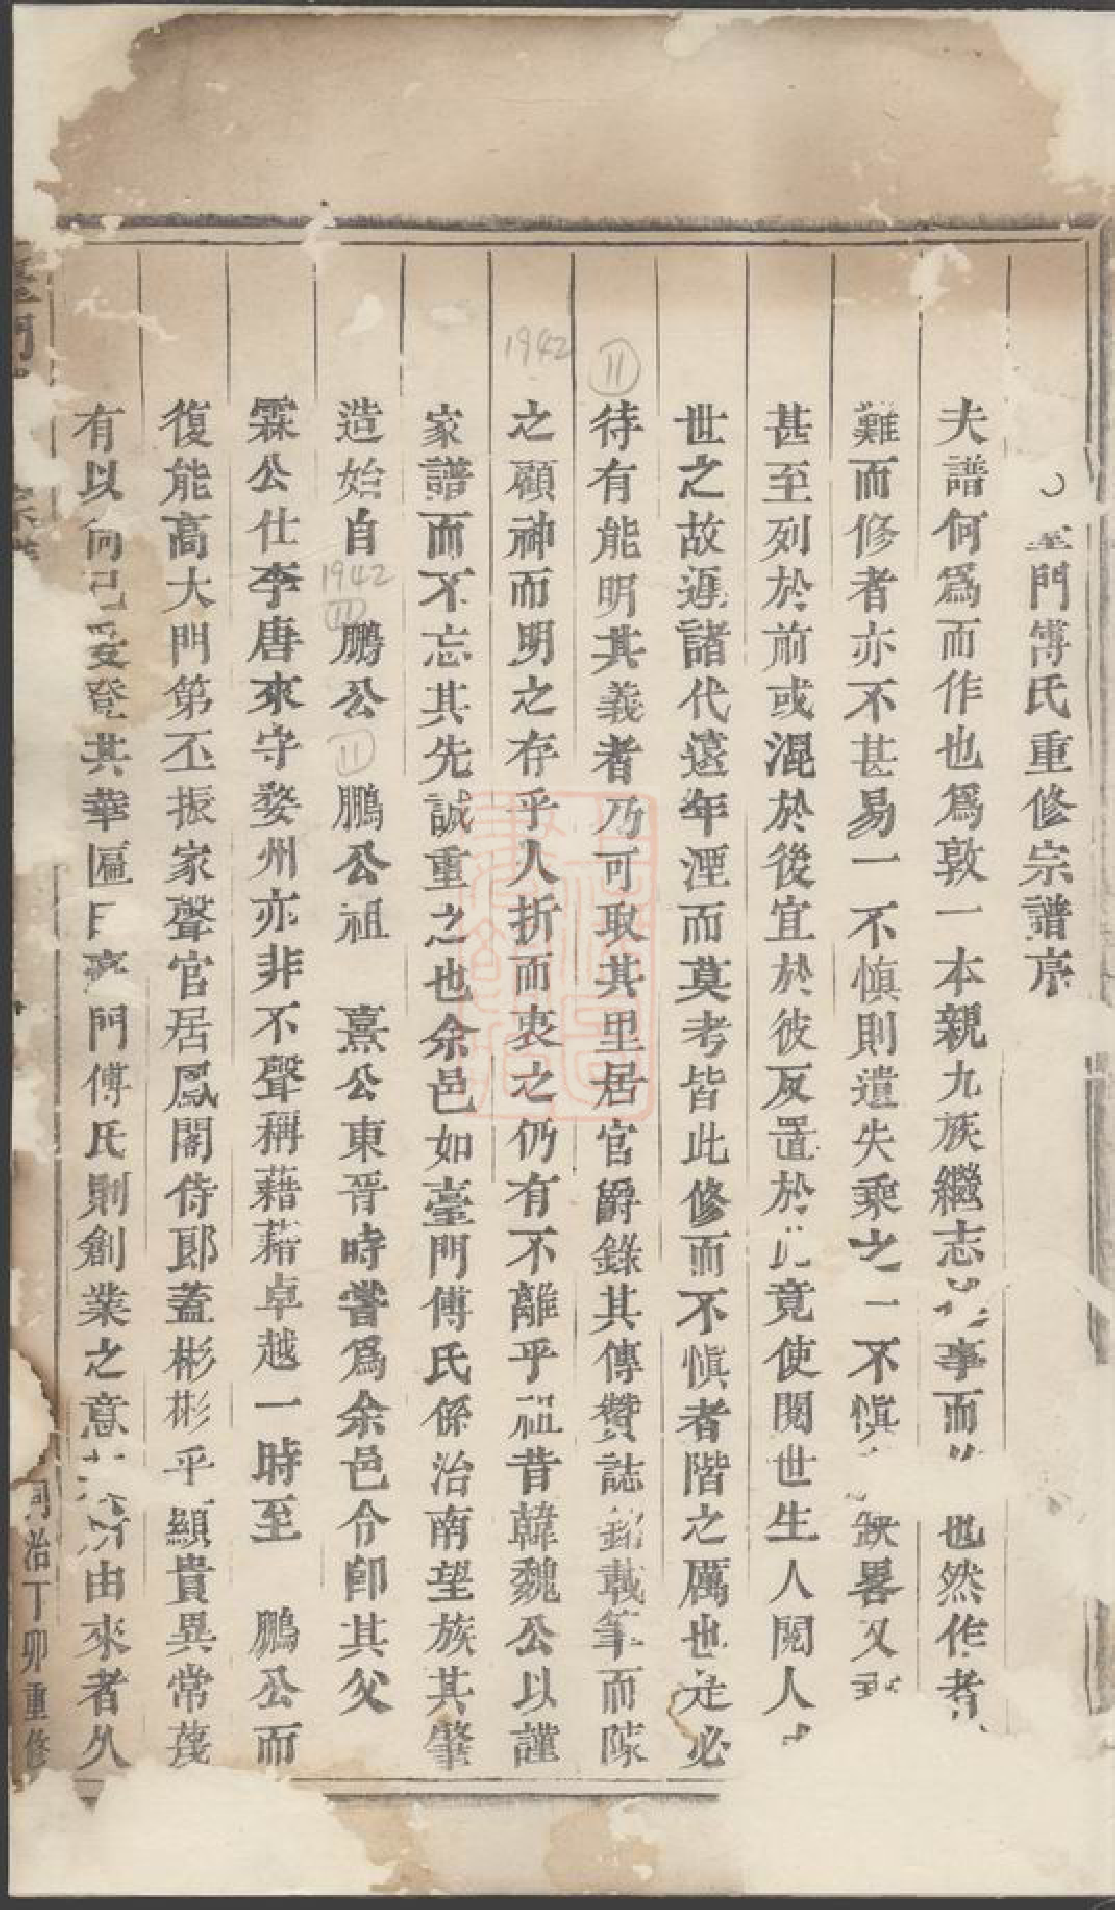 門傅氏重修宗譜序
夫譜何爲而作也爲敦一本親九族繼志事而也然作者
難而修者亦不甚易一不慎則遺失乘之一不慎缺畧又
甚至列於前或混於後宜於彼反置於此竟使閱世生人閱人
世之故遇諸代遠年湮而莫考皆此修而不慎者階之厲也是必
待有能明其義者乃可取其里居官爵錄其傳贊誌銘載筆而陳
之顧神而明之存乎人折而衷之仍有不離乎祖昔韓魏公以謹
家譜而不忘其先誠重之也余邑如臺門傅氏係治南望族其肇
造始自鵬公鵬公祖 熹公東晉時嘗爲余邑令卽其父
霖公仕李唐來守婺州亦非不聲稱藉藉卓越一時至 鵬公而
復能高大門第丕振家聲官居鳳閣侍郎蓋彬彬乎顯貴異常蔑
有以尚已登其華區門傅氏則創業之意所由來者久
臺門
同治丁卯重修
1942
11
1942
11